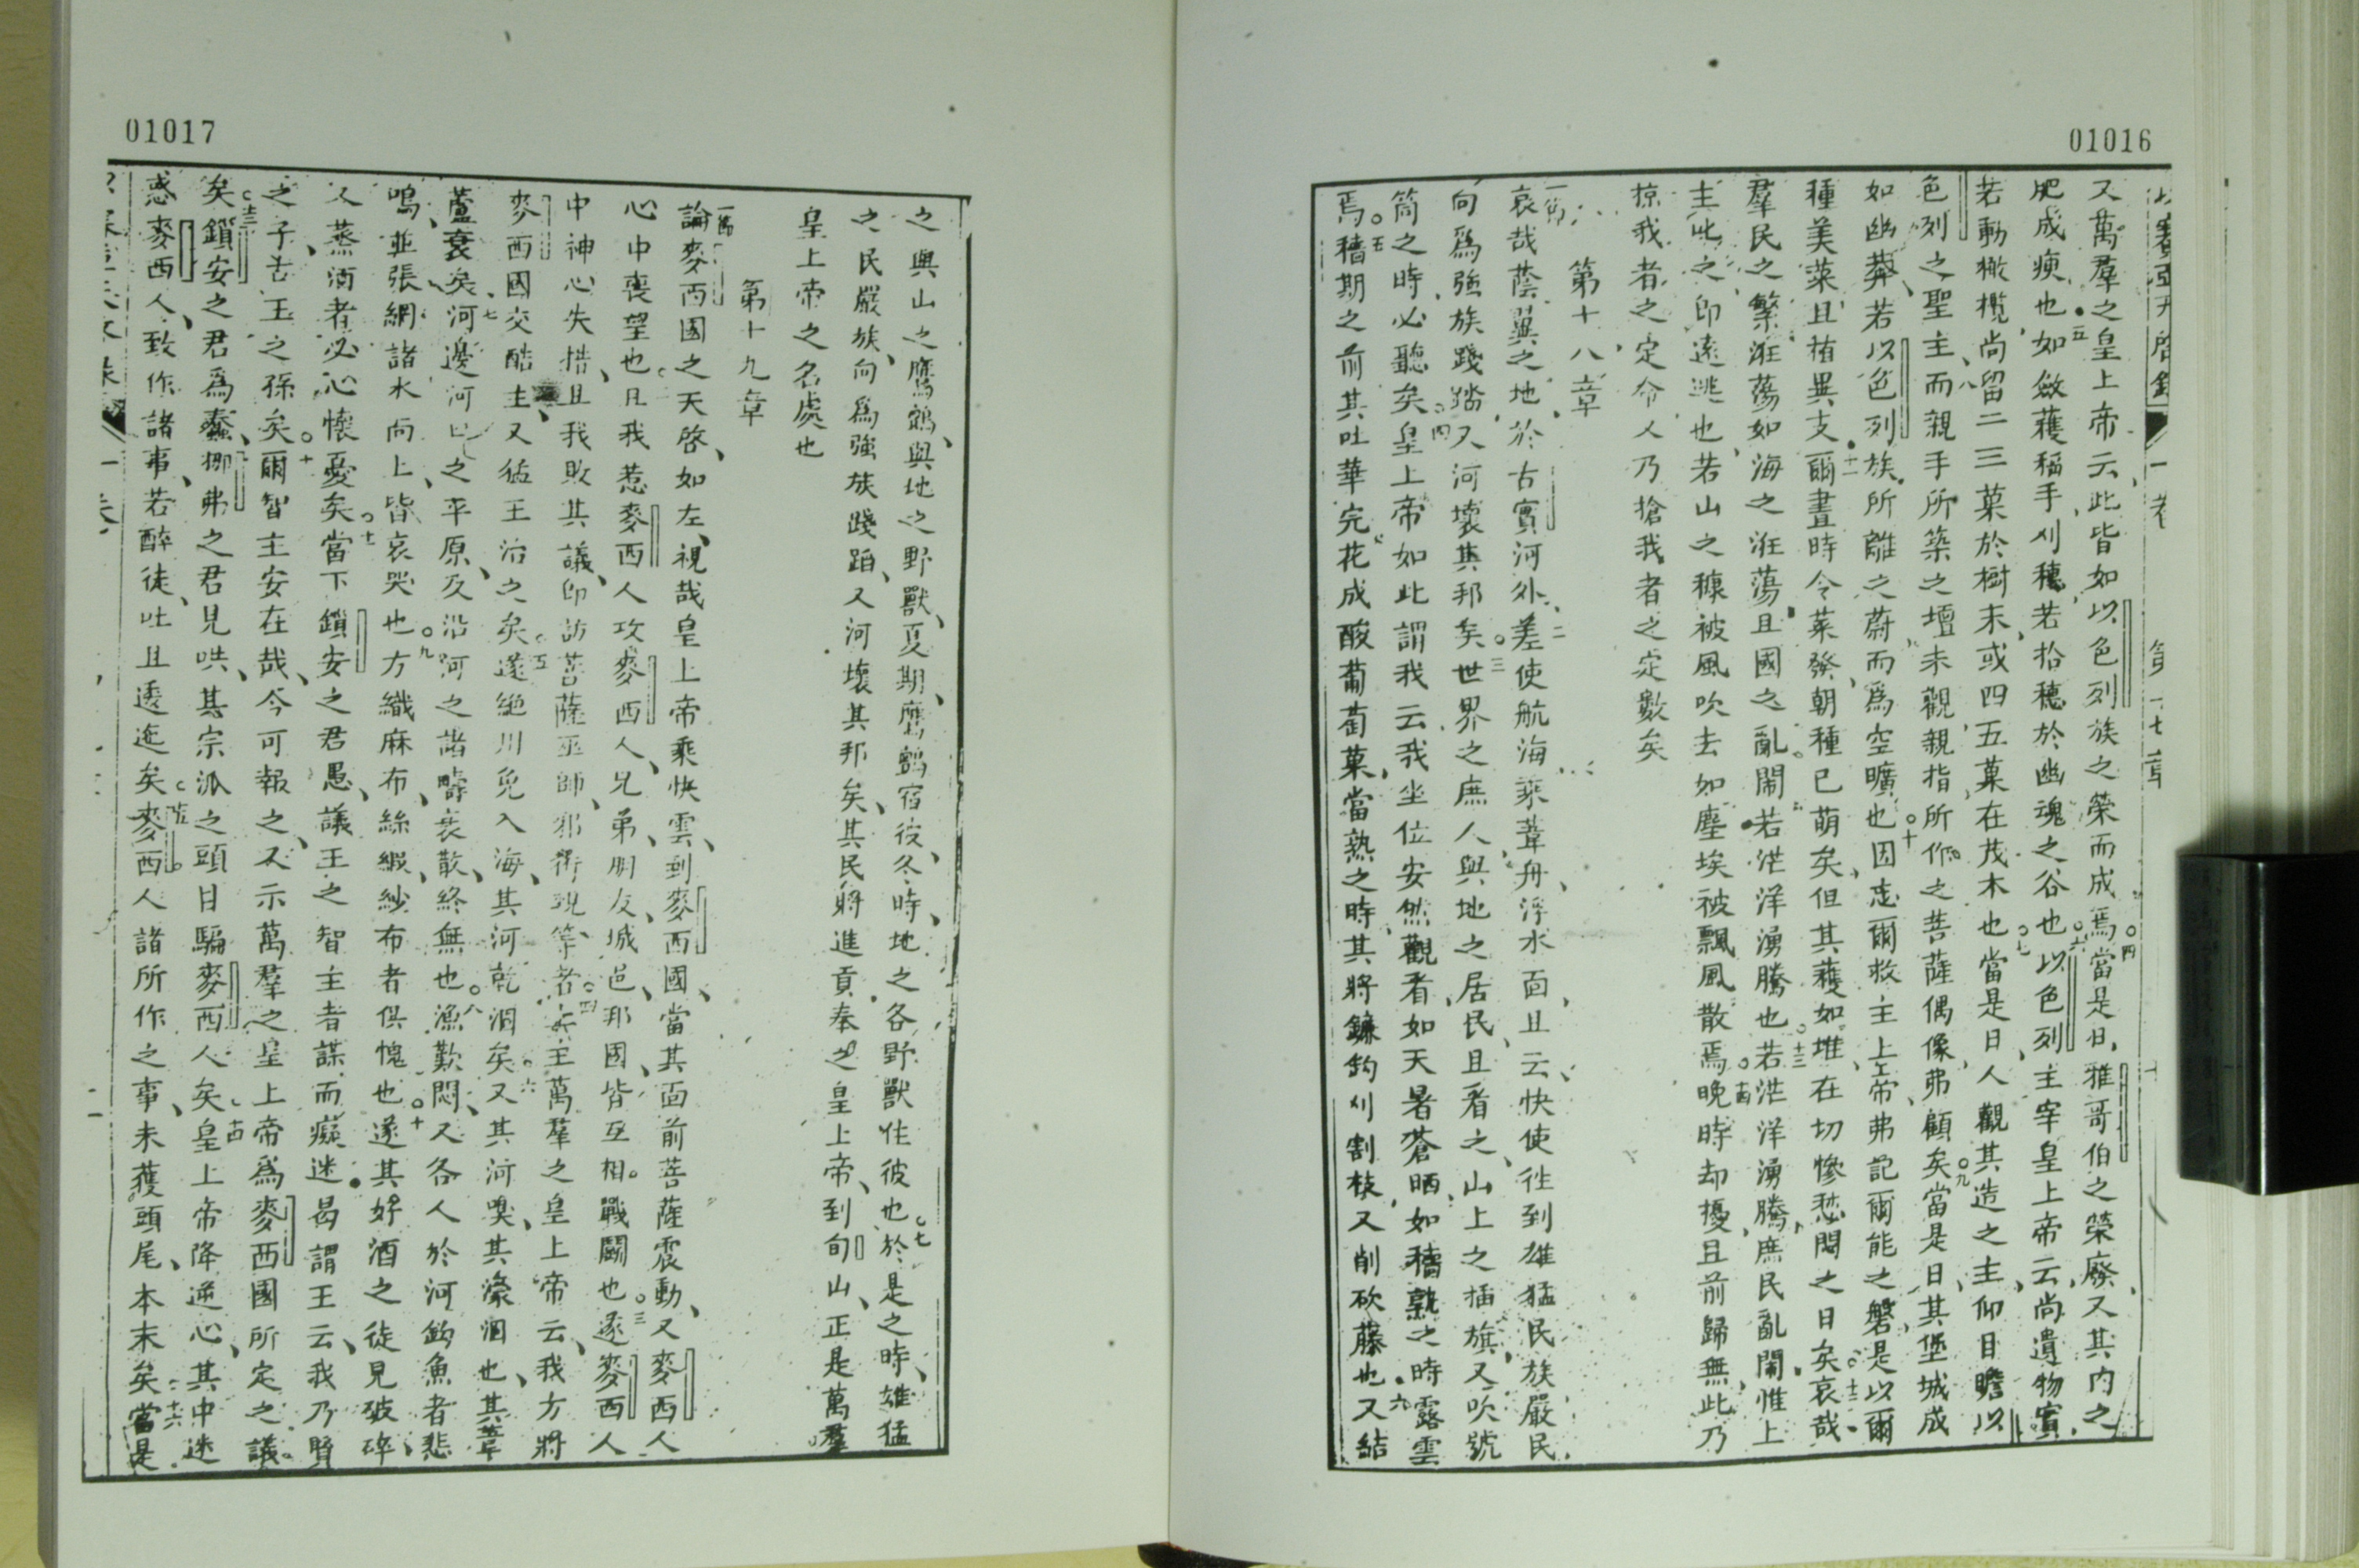 01016
又萬羣之皇上帝云、此皆如以色列族之榮而成焉○四當是日、雅哥伯之榮廢、又其內之
肥成瘐也、○五如斂穫稲手、刈穗、若拾穗於幽魂之谷也○六以色列主宰皇上帝云、尚遺物實、
若動橄欖尚留二三菓於樹末、或四五菓在茂木也○七當是日、人觀其造之主、仰目瞻以
色列之聖主、○八而親手所築之壇未觀、親指所作之菩薩偶像、弗顧矣○九當是日、其堡城成
如幽莽、若以色列族所離之蔚、而爲空曠也○十因忘爾救主上帝、弗記爾能之磐、是以爾
種美菜、且植異支○十一爾晝時令菜發、朝種已萌矣、但其穫如堆、在切慘愁悶之日矣○十二哀哉、
羣民之繁、洷蕩如海之洷蕩、且國之亂鬧、若茫洋湧騰也○十三若茫洋湧騰、庶民亂鬧、惟上
主叱之、即遠逃也、若山之糠被風吹去、如塵埃被飄風散焉○十四晚時却擾、且前歸無、此乃
掠我者之定命、乂乃搶我者之定數矣
第十八章
一節哀哉蔭翼之地、於古實河外、○二差使航海乘葦舟、浮水面、且云、快使徃到雄猛民族、嚴民、
向爲強族踐踏、又河壞其邦矣○三世界之庶人與地之居民、且看之、山上之插旗、又吹號
筒之時、必聽矣○四皇上帝如此謂我云、我坐位安然觀看、如天暑蒼晒、如穡熟之時露雲
焉○五穡期之前、其吐華完、花成酸葡萄菓、當熟之時、其將鐮鈎刈割枝、又削砍藤也○六又結
01017
之與山之鷹鷯、與地之野獸、夏期、鷹鷯宿彼、冬時、地之各野獸住彼也○七於是之時、雄猛
之民嚴族、向爲強族踐蹈、又河壞其邦矣、其民將進貢奉之皇上帝、到旬山、正是萬羣
皇上帝之名處也
第十九章
一節論麥西國之天啓、如左、視哉皇上帝乘快雲、到麥西國、當其面前菩薩震動、又麥西人
心中喪望也○二且我惹麥西人攻麥西人、兄弟、朋友、城邑、邦國、皆互相戰鬭也○三遂麥西人
中神心失措、且我敗其議、即訪菩薩巫師、邪術、現等者○四主萬羣之皇上帝云、我方將
麥西國交酷主、又猛王治之矣○五遂絶川免入海、其河乾涸矣○六又其河嗅、其濠涸也、其葦
蘆衰矣○七河邊河口之平原、及沿河之諸疇、衰散終無也○八漁歎悶、又各人於河鈎魚者悲
嗚、並張網諸水面上、皆哀哭也○九方織麻布、絲緞紗布者俱愧也○十遂其好酒之徒見破碎、
又蒸酒者、必心懷憂矣○十一當下鎖安之君愚、議王之智主者謀而癡迷、曷謂王云、我乃賢
之子、古王之孫矣○十二爾智主安在哉、今可報之、又示萬羣之皇上帝爲麥西國所定之議。
矣○十三鎖安之君爲蠢、挪弗之君見哄、其宗派之頭目騙麥西人矣○十四皇上帝降逆心、其中迷
惑麥西人、致作諸事、若醉徒、吐且逶迤矣○十五麥西人諸所作之事、未獲頭尾、本末矣○十六當是